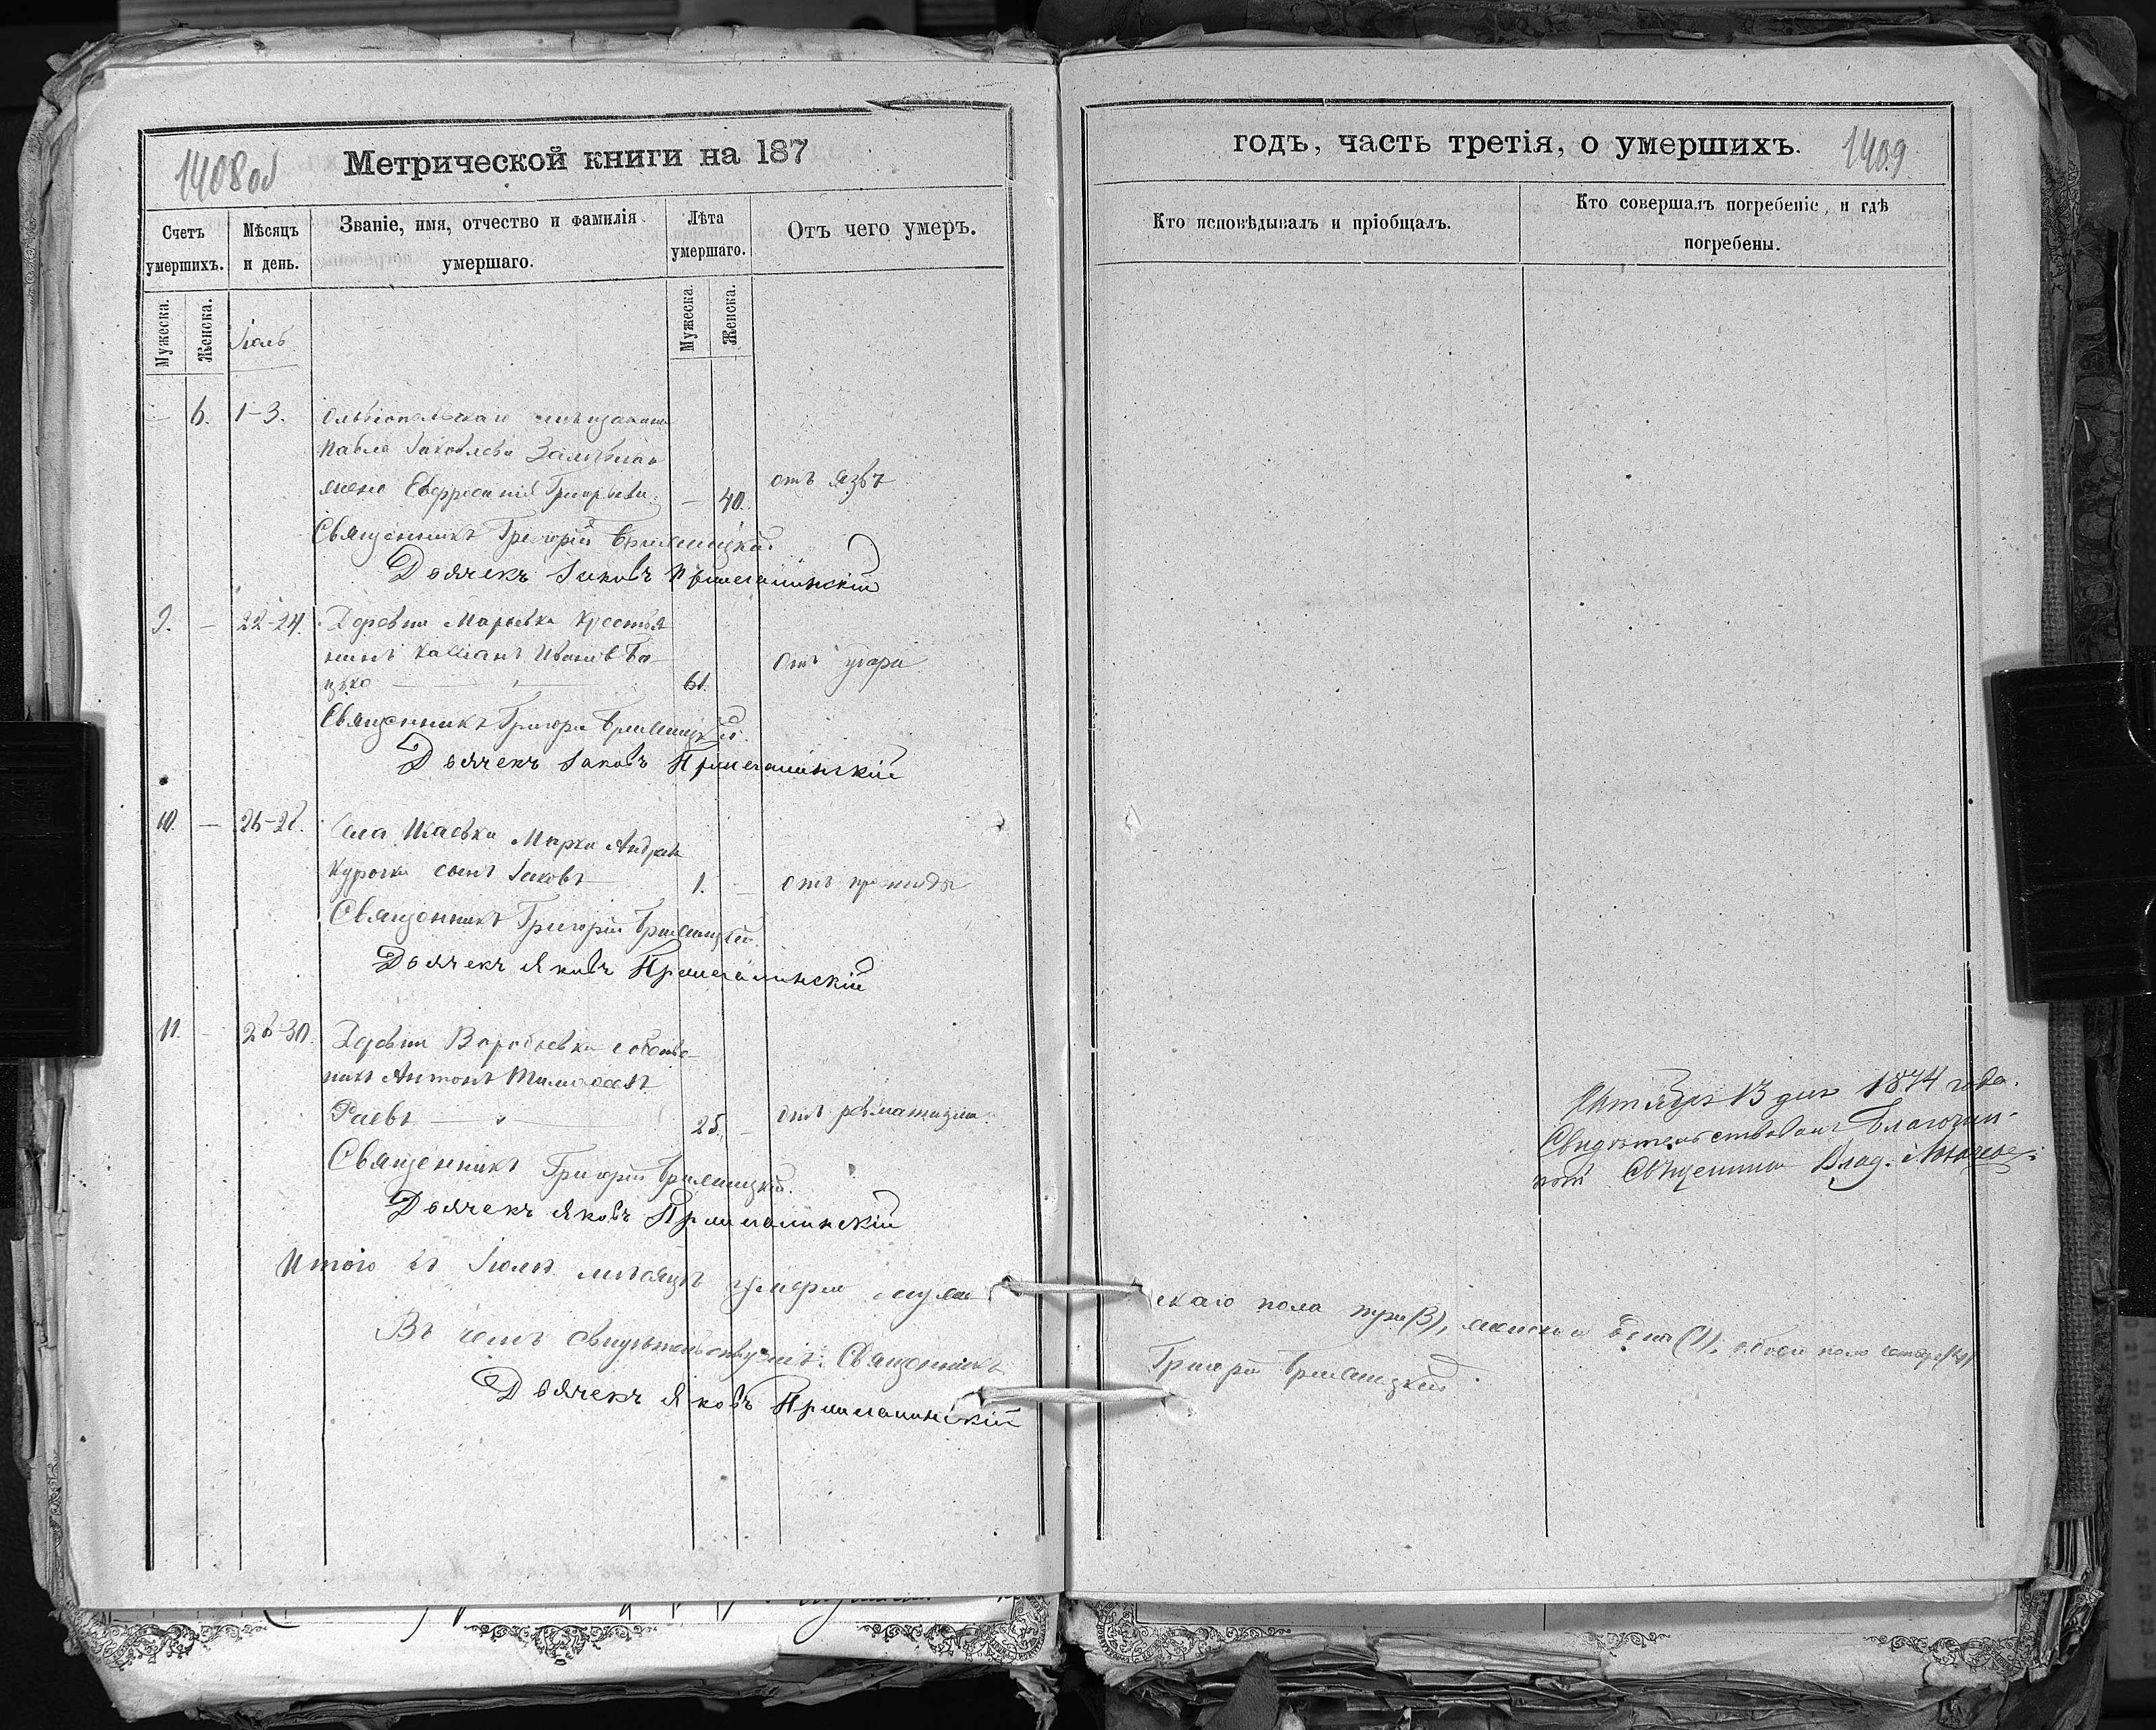 1408 об
Метрической книги на 187
Счетъ умершихъ.
Мѣсяцъ и день.
Званіе, имя, отчество и фамилія умершаго.
Лѣта умершаго.
Отъ чего умеръ.
Мужеска.
Женска.
Мужеска.
Женска.
Іюль
— 6. 1-3. Ольвіопольскаго мѣщанина
Павла Іаковлева
жена Евфросинія Григорьева — 40. отъ язвъ
Священникъ Григорій
Дьячекъ Іаковъ
9. — 22-24. Деревни Марьевки крестья
нинъ Касіанъ Ивановъ Ба
цько 61. Отъ угара
Священникъ Григорій
Дьячекъ Іаковъ
10. — 26-28. Села Исаевки Марка Андреева
Курочки сынъ Іаковъ 1. — Отъ простуды
Священникъ Григорій
Дьячекъ Яковъ
11. — 28-30. Деревни Воробьевки собстве
никъ Антонъ
Раевъ 25. — отъ ревматизма
Священникъ Григорій
Дьячекъ Яковъ
Итого въ Іюлѣ мѣсяцѣ умерло муже
Въ чемъ свидѣтельствуемъ: Священникъ
Дьячекъ Яковъ
годъ, часть третія, о умершихъ.
1409
Кто исповѣдывалъ и пріобщалъ.
Кто совершалъ погребеніе, и гдѣ
погребены.
Октября 13 дня 1874 года.
Свидѣтельствовалъ Благочин-
ный Священникъ Влад.
скаго пола три (3), женска одна (1), обоего пола четыре (4)
Григорій